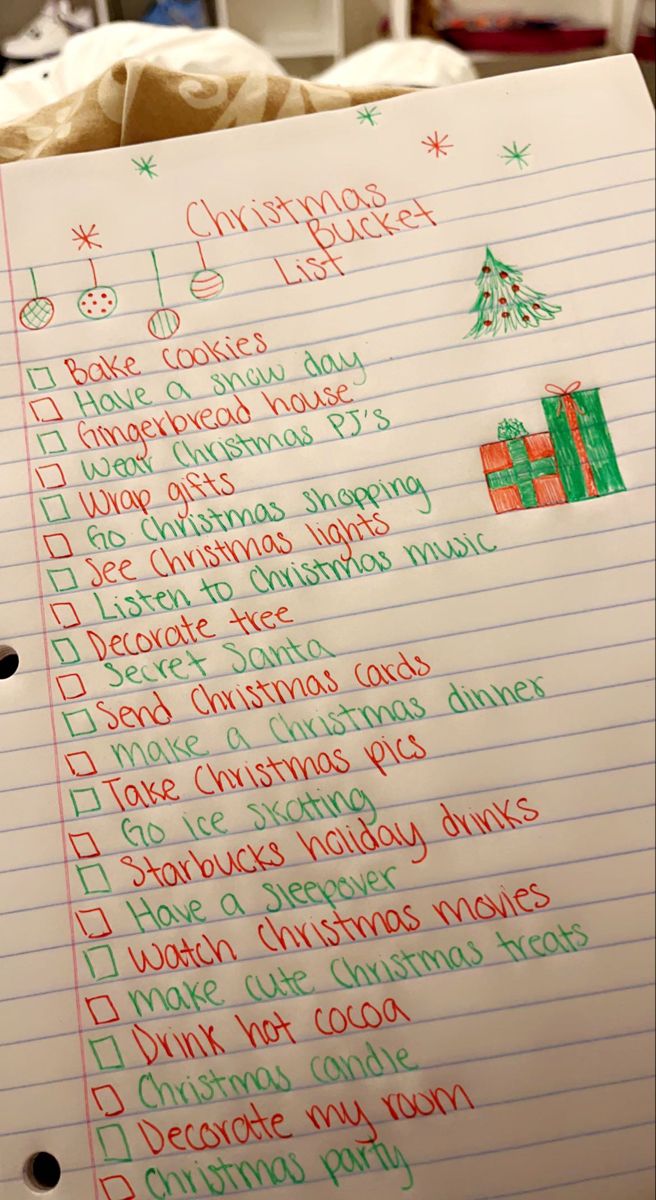 Christmas
Bucket
List
Bake cookies
Have a snow day
Gingerbread house
Wear Christmas PJ's
Wrap gifts
Go Christmas shopping
See Christmas lights
Listen to Christmas music
Decorate tree
Secret Santa
Send Christmas cards
Make a Christmas dinner
Take Christmas pics
Go ice skating
Starbucks holiday drinks
Have a sleepover
Watch Christmas movies
Make cute Christmas treats
Drink hot cocoa
Christmas candle
Decorate my room
Christmas party